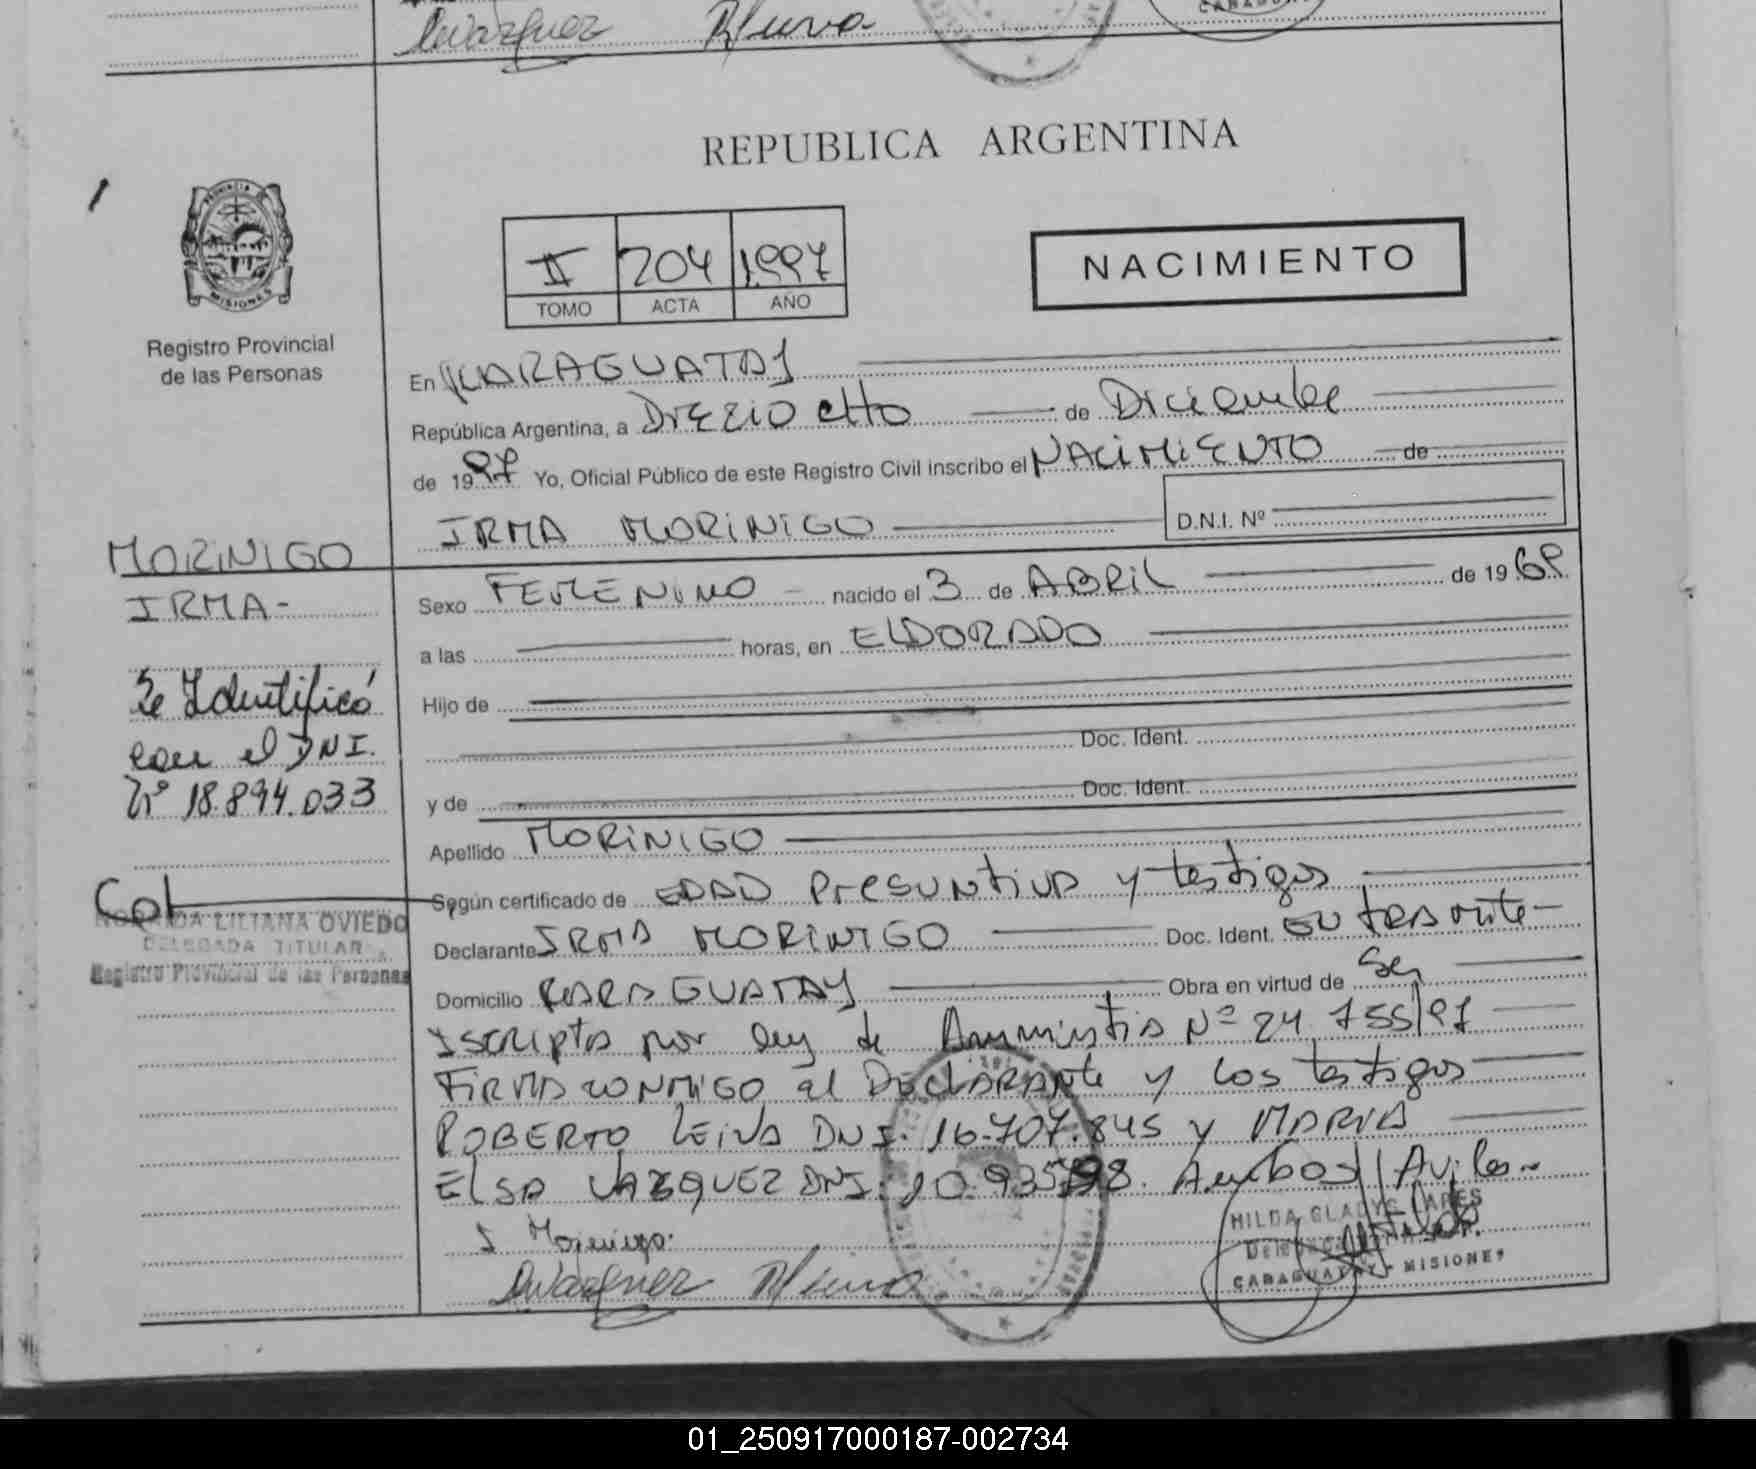 REPUBLICA ARGENTINA
PROVINCIA
MISIONES
Registro Provincial
de las Personas
II 204 1.997
TOMO ACTA AÑO
NACIMIENTO
En CARAGUATAY
República Argentina, a Dieziocho de Diciembre
de 1997 Yo, Oficial Público de este Registro Civil inscribo el NACIMIENTO de
IRMA MORINIGO D.N.I. Nº
MORINIGO
IRMA-
Se Identificó
con el DNI.
Nº 18.894.033
NORMDA LILIANA OVIEDO
DELEGADA TITULAR
Registro Provincial de las Personas
Sexo FEMENINO - nacido el 3 de ABRIL de 1968
a las horas, en ELDORADO
Hijo de
Doc. Ident.
y de Doc. Ident.
Apellido MORINIGO
Según certificado de EDAD Presuntiva y testigos
Declarante IRMA MORINIGO Doc. Ident. EN tramite-
Domicilio CARAGUATAY Obra en virtud de Ser
Iscripta por ley de Amnistia Nº 24.755/97
FIRMA CONMIGO el DECLARANte y los testigos
ROBERTO LEIVA DNI. 16.707.845 y MARIA
ELSA VAZQUEZ DNI. Ambos//Aviles-
I Morinigo.
HILDA GLADYS
CARAGUATAY - MISIONES
01_250917000187-002734